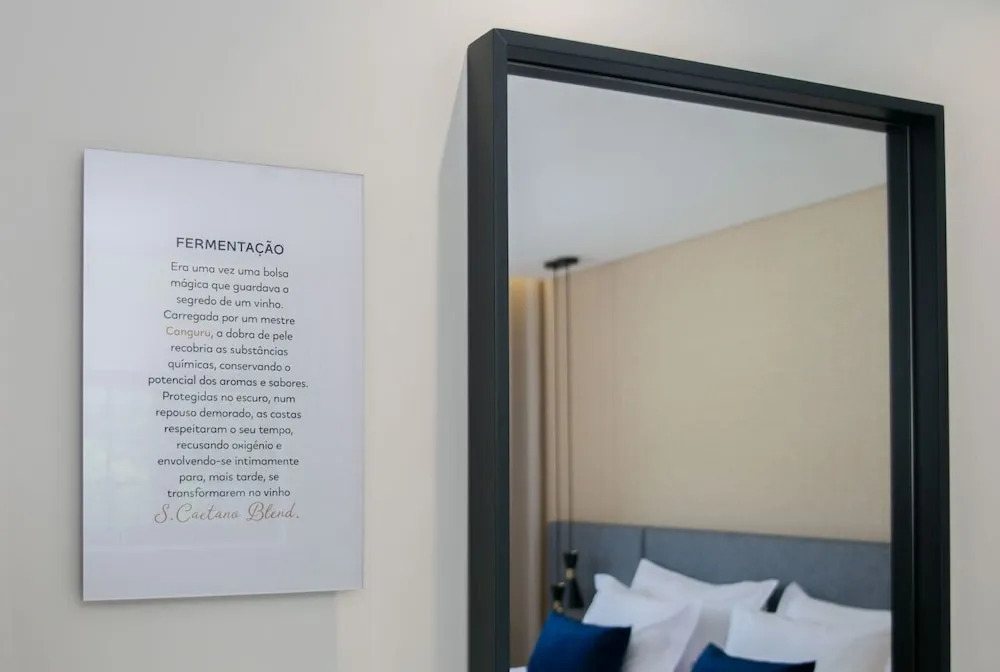 FERMENTAÇÃO
Era uma vez uma bolsa
mágica que guardava o
segredo de um vinho.
Carregada por um mestre
Canguru, a dobra de pele
recobria as substâncias
químicas, conservando o
potencial dos aromas e sabores.
Protegidas no escuro, num
repouso demorado, as castas
respeitaram o seu tempo,
recusando oxigénio e
envolvendo-se intimamente
para, mais tarde, se
transformarem no vinho
S. Caetano Blend.